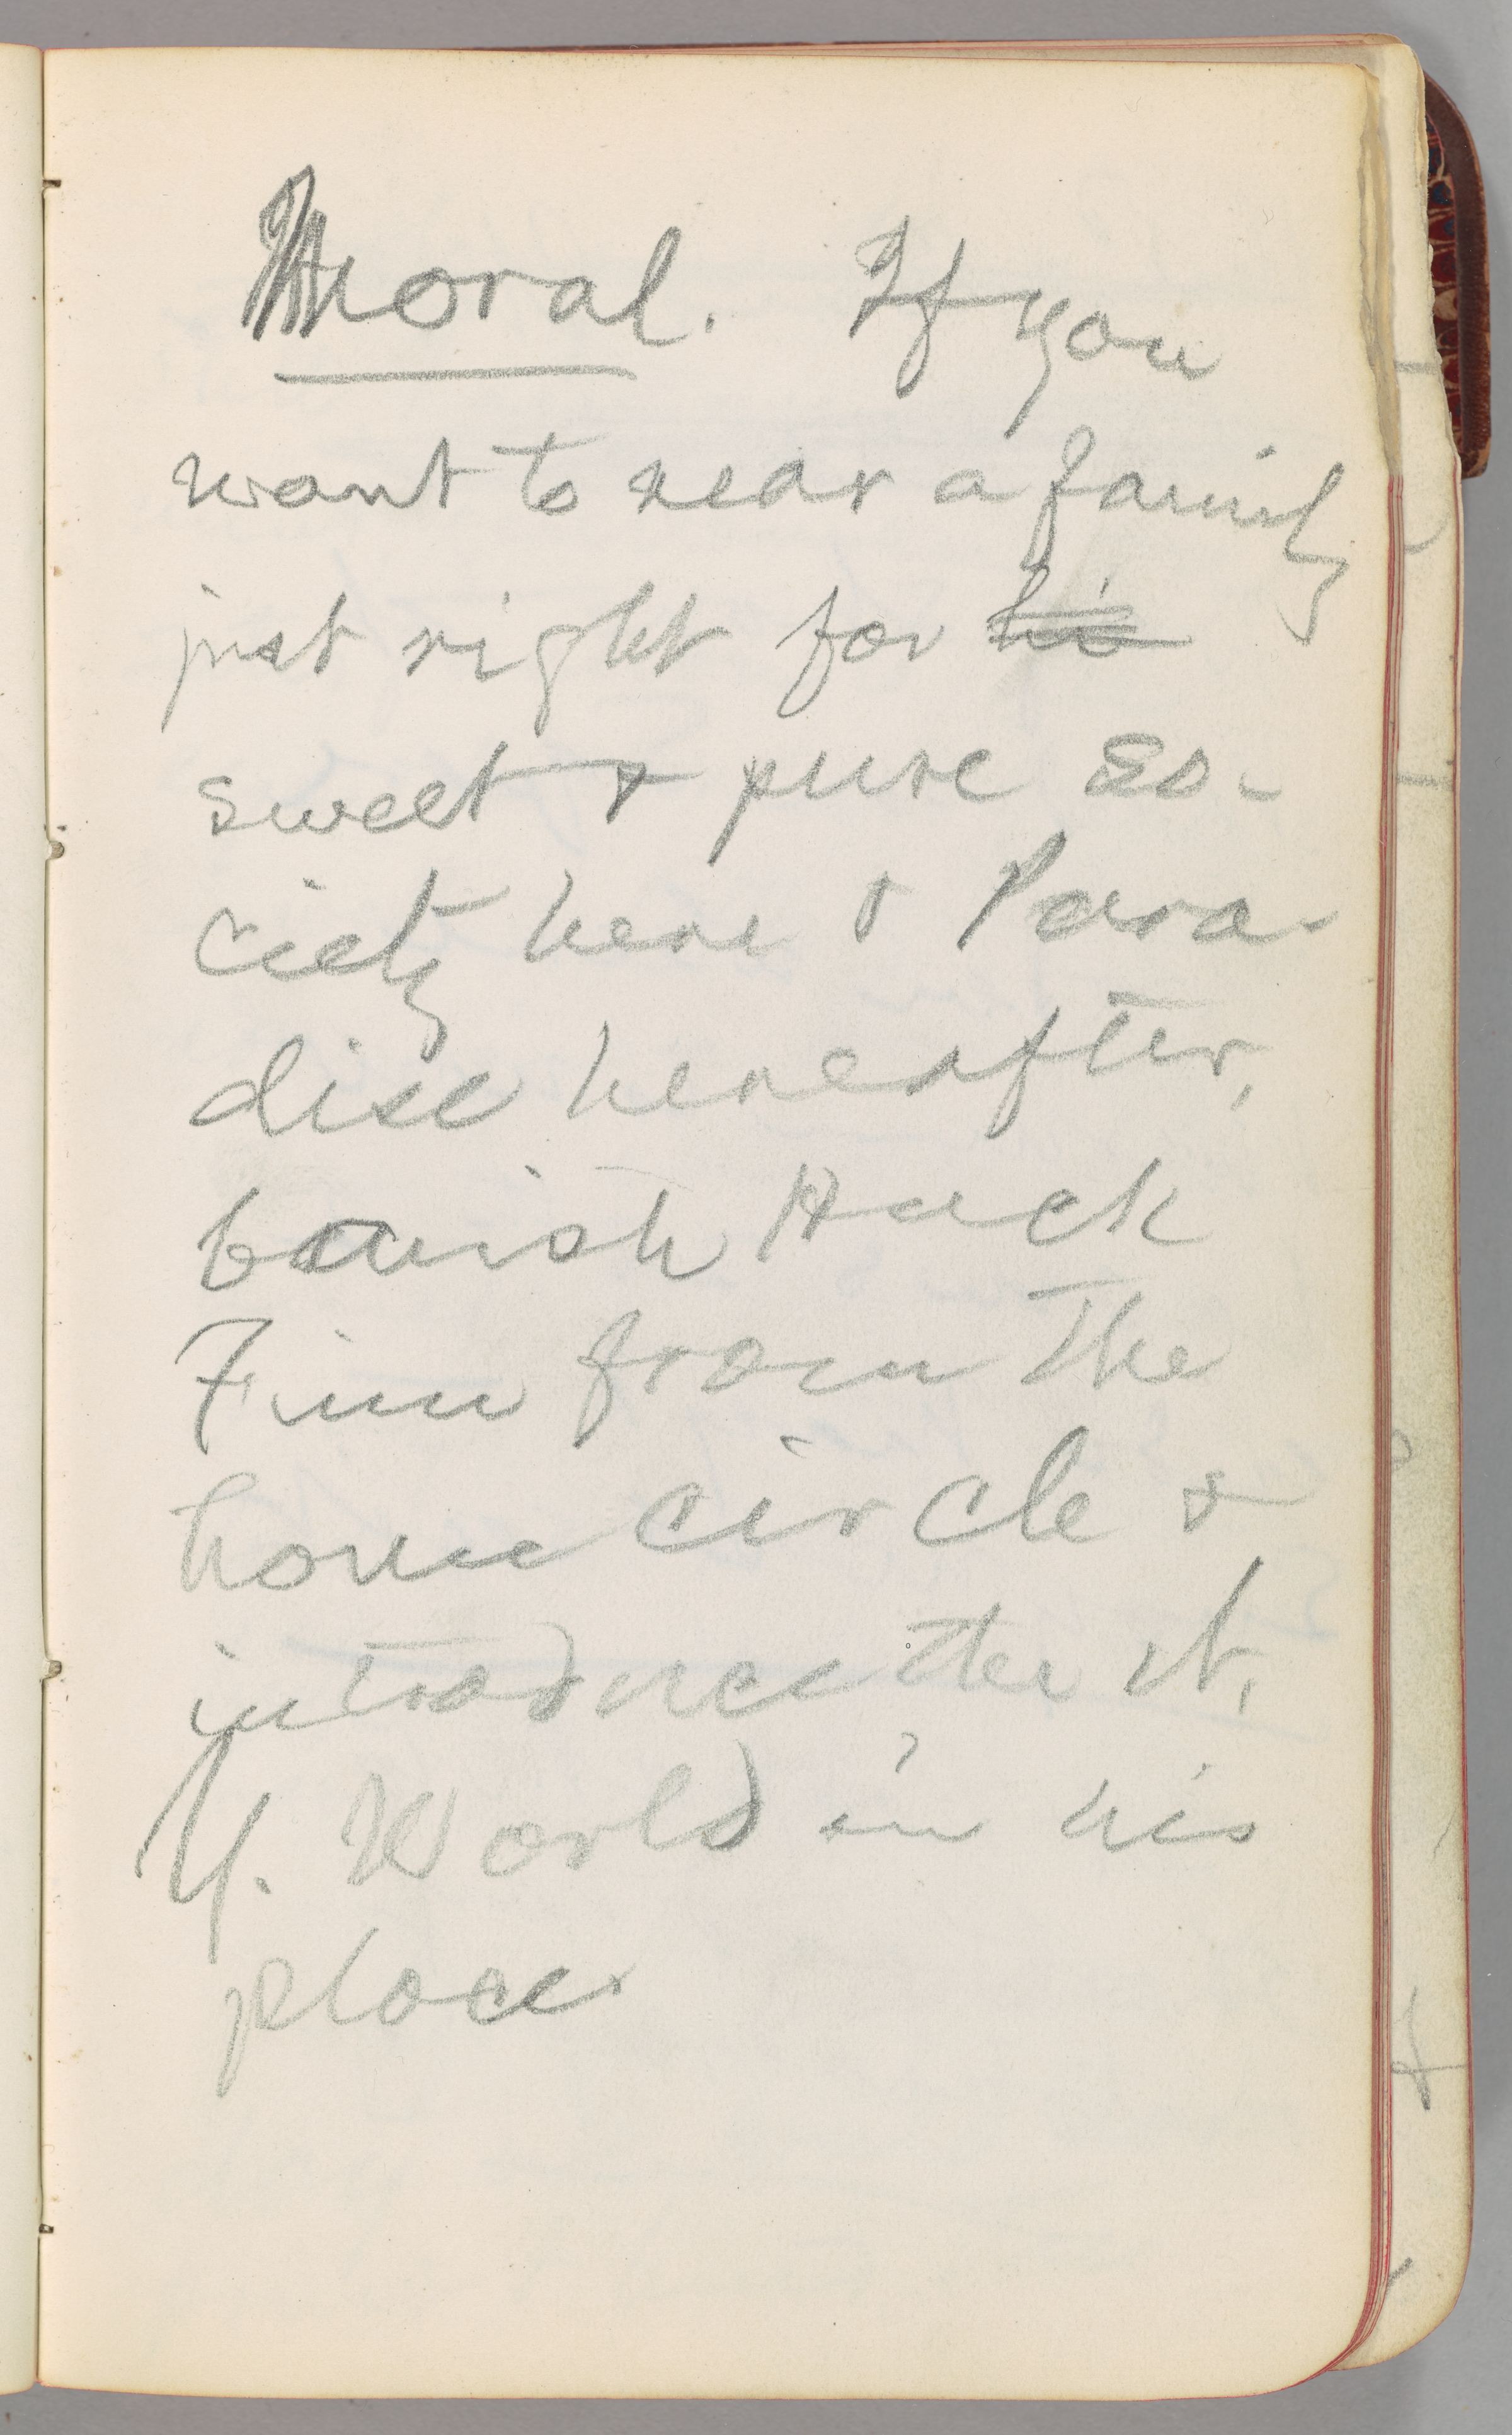 Moral. If you
want to rear a family
just right for his
sweet & pure so-
ciety here & Para-
dise hereafter,
banish Huck
Finn from the
home circle &
introduce the N.
Y. World in his
place.